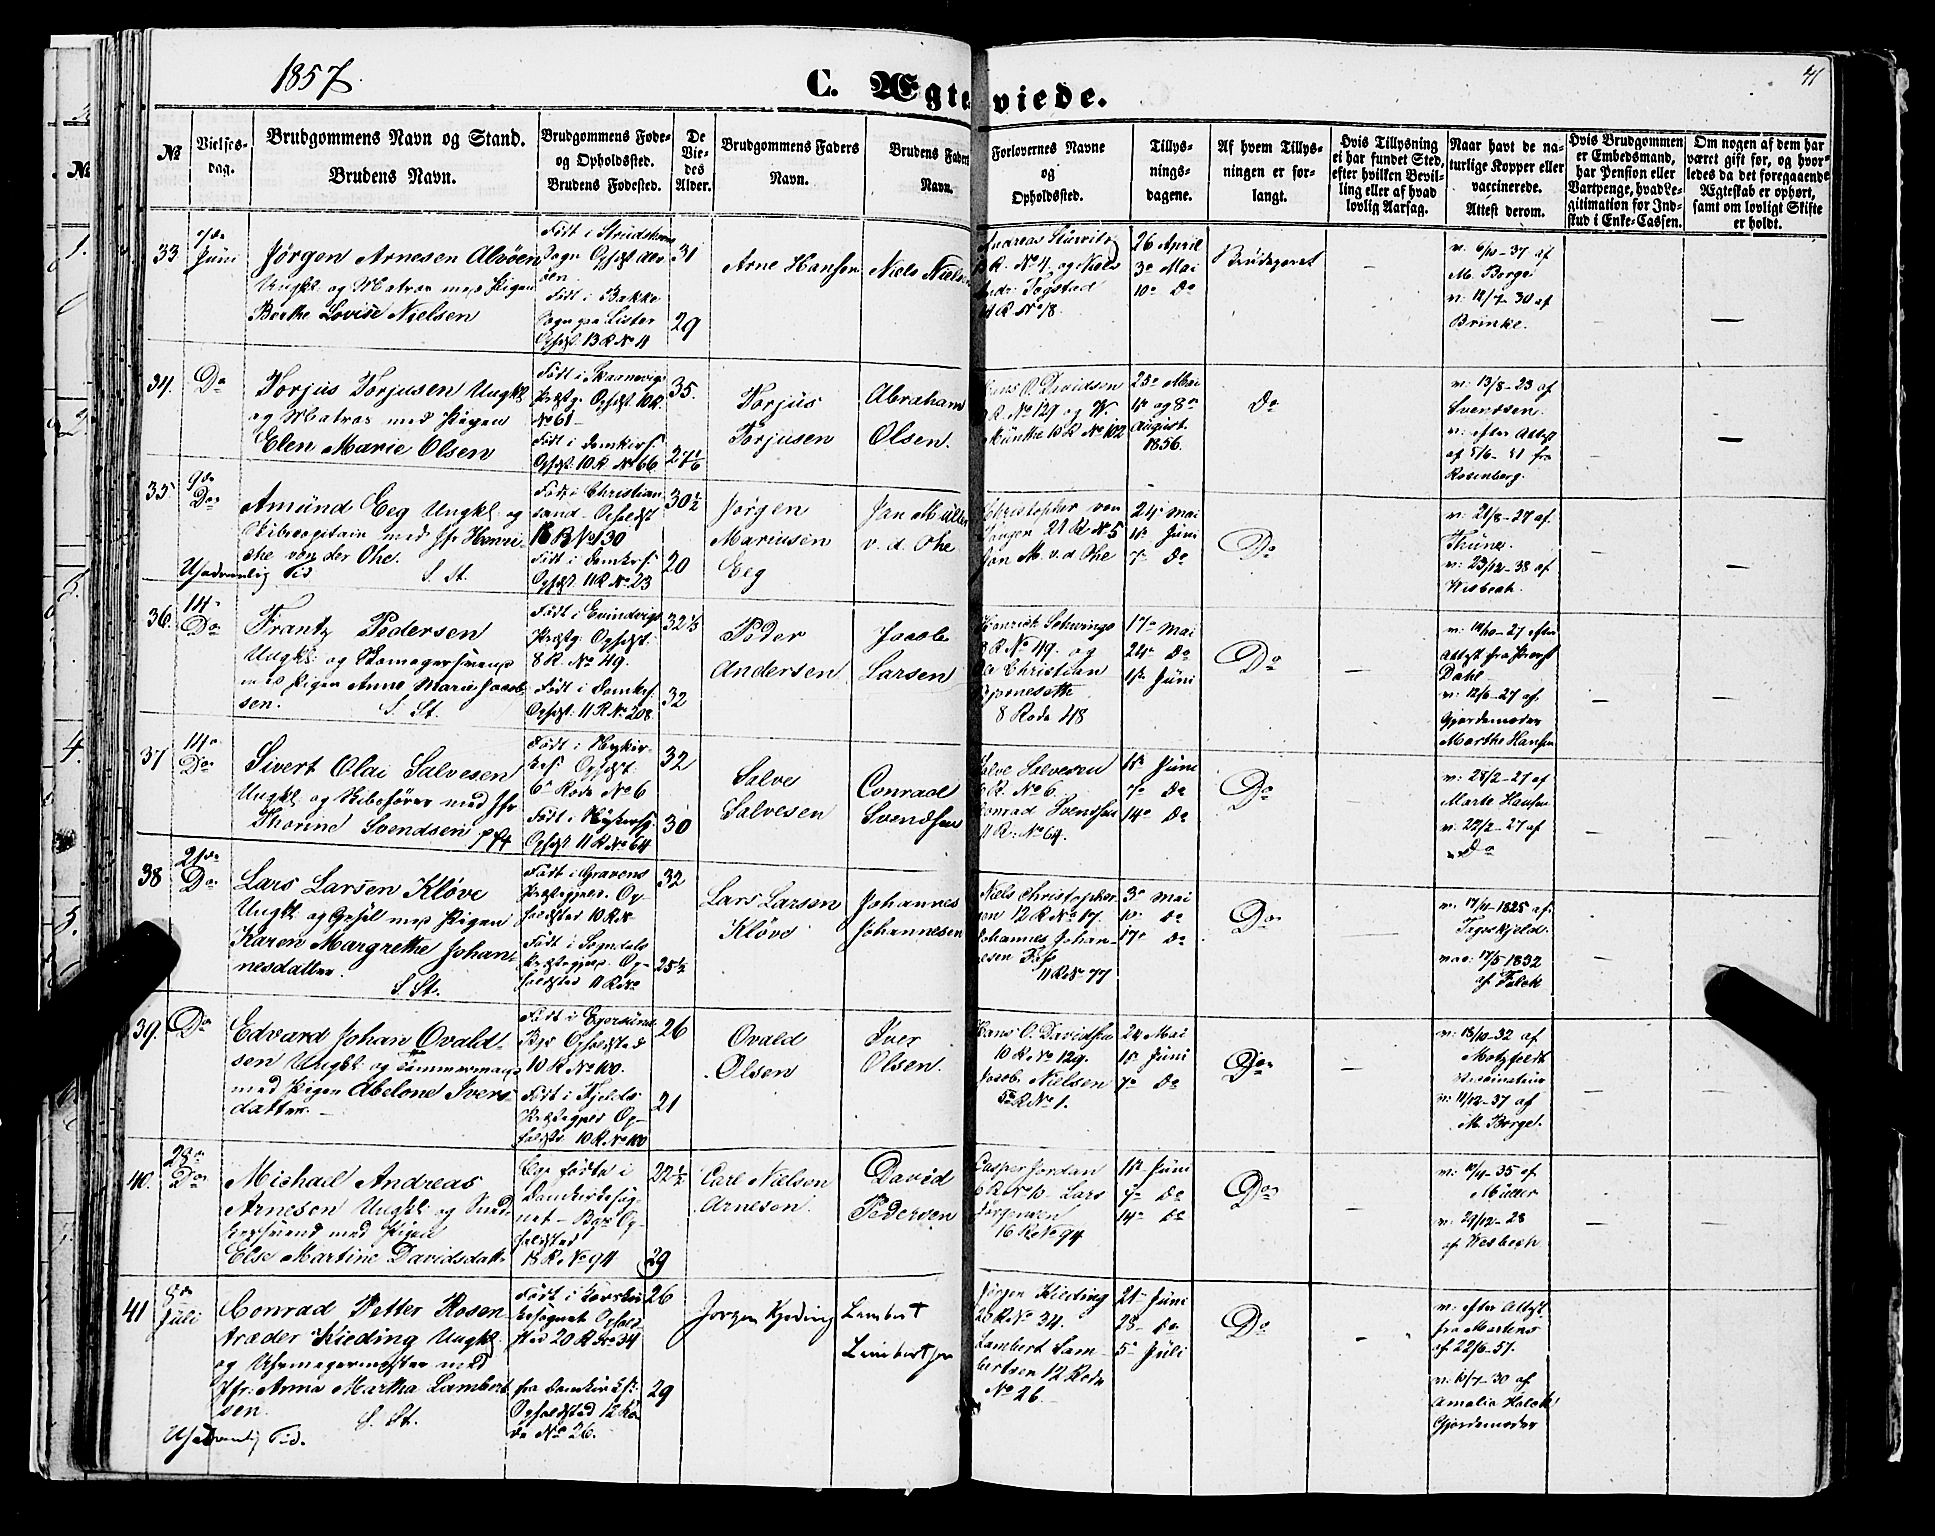 1857.
C. Ægteviede.
41
№
Vielses-
dag.
Brudgommens Navn og Stand.
Brudens Navn.
Brudgommens Føde-
og Opholdssted.
Brudens Fødested.
De
Vie-
des
Alder.
Brudgommens Faders
Navn.
Brudens Faders
Navn.
Forlovernes Navne
og
Opholdssted.
Tillys-
nings-
dagene.
Af hvem Tillys-
ningen er for-
langt.
Hvis Tillysning
ei har fundet Sted,
efter hvilken Bevil-
ling eller af hvad
lovlig Aarsag.
Naar havt de na-
turlige Kopper eller
vaccinerede.
Attest derom.
Hvis Brudgommen
er Embedsmand,
har Pension eller
Vartpenge, hvad Le-
gitimation for Ind-
skud i Enke-Cassen.
Om nogen af dem har
været gift før, og hvor-
ledes da det foregaaende
Ægteskab er ophørt,
samt om lovligt Skifte
er holdt.
33
Juni
Jørgen Arnesen Alvøen
Ungkl og Matros med Pigen
Berthe Lovise Nielsen
Født i
Sogn
Født i Bakke
Sogn paa Lister
Opholdst 13 R No 4
31
29
Arne Hansen
Niels Nielsen
Andreas
R. No 4 og Niels
R No 18.
26 April
3die Mai
10de Do
Brudeparet
v. 6/10-37 af
M. Borge
v. 12/7-30 af
Brinke.
34.
Do
Torjus Torjusen Ungkl
og Matros med Pigen
Elen Marie Olsen
Født i Skaanevigs
Præstg. Opholdst 10 R.
No 61
Født i Domkirks.
Opholdst. 10 R. No 66.
35.
27 1/6
Torjus
Torjusen
Abraham
Olsen.
Hans O. Davidsen
R No 129 og W.
Münthe 10 R No 102
25de Mai
1ste og 8de
August
1856.
Do
v. 13/8-23 af
Svendsen.
v. efter Attest
af 5/6-51 fra
Rosenberg.
35
9de
Do
Amünd Eeg Ungkl og
Skibscapitain med Jfr Henri-
che von der Ohe.
Usædvanlig Tid S. St.
Født i Christian
sand - Opholdst
16 R No 130
Født i Domkirks.
Opholdst. 11 R No 23
30 1/2
20
Jørgen
Mariusen
Eeg
Jan Müller
v. d. Ohe
Christopher von
Tangen 21 R No 5
Jan M. v. d Ohe
24de Mai
1ste Juni
7de Do
Do
v. 21/8-27 af.
Thüne.
v. 23/12-38 af
Wesbech.
36.
14de
Do
Frantz Pedersen
Ungkl og Skomagersvend
med Pigen Anne Marie Jacob-
sen. S. St.
Født i Evindvigs
Præstg. Opholdst.
8 R. No 49.
Født i Domkirks.
Opholdst. 11 R. No 208.
32 1/3
32
Peder
Andersen
Jacob
Larsen
Henrich Schwings
8 R No 49. og
Christian
8 Rode 48
17de Mai
24de Do
1ste Juni
Do
v. 19/10-27 efter
Attest fra Provst
Dahl
v. 12/6-27 af.
Gjordemoder
Marthe Hansen
37
14de
Do
Sivert Olai Salvesen
Ungkl og Skibsfører med Jfr
Thorine Svendsen
Født i Nykir-
kes. Opholdst.
6te Rode No 6
Født i Nykirks.
Opholdst 11 R. No 64
32
30
Salve
Salvesen
Conrad
Svendsen
Salve Salvesen
R. No 6.
Conrad Svendsen
11 R. No 64.
1ste Juni
7de Do
14de Do
Do
v. 28/2-27 af
Marte Hansen
v. 22/2-27 af
Do
38
21de
Do
Lars Larsen Kløve
Ungkl og Gesel med Pigen
Karen Margrethe Johan-
nesdatter. S. St.
Født i Gravens
Præstegjeld. Op-
holdsted 10 R No
Født i Sogndals
Præstegjeld. Op-
holdsted 11 R No
32
25 1/2
Lars Larsen
Kløve
Johannes
Johannesen
Niels Christopher
sen 12 R No 17.
Johannes Johan-
nesen
11 R No 77
3die Mai
10de Do
17de Do
Do
v. 17/4-1825 af.
vac. 17/5-1832
af Falck
39.
Do
Edvard Johan Ovald-
sen Ungkl og Tømmermand
med Pigen Abelone Ivers-
datter.
Født i Egersund
By. Opholdsted
10 R. No 100.
Født i Fjelds
Præstegjeld Op-
holdsted 10 R. No 100
26
21
Ovald
Olsen
Iver
Olsen.
Hans O. Davidsen
10 R. No 129.
Jacob Nielsen
5te R No 1.
24 Mai
1ste Juni
7de Do
Do
v. 13/10-32 af
Motzfeldt
v. 11/12-37 af
M. Borge.
40.
28de
Do
Michael Andreas
Arnesen Ungkl og Sned-
kersvend med Pigen
Else Martine Davidsdatt
Begge fødte i
Domkirkesog-
net - Begges Op-
holdsted
18 R. No 94
22 1/2
29
Carl Nielsen
Arnesen.
David
Pedersen
Casper Jordan
6 R No 10. Lars
Jørgensen
16 R No 94
1ste Juni
7de Do
14de Do
Do
v. 10/4-35 af
Müller
v. 29/12-28
af Wesbech
41
5de
Juli
Conrad Petter Rosen-
træder Kieding Ungkl
og Uhrmagermester med
Jfr. Anna Martha Lambert
sen. S. St.
Usædvanlig Tid.
Født i Korskir-
kesognet Ophold
sted 20 R No 34
fra Domkirkes:
Opholdsted 12 Ro-
de No 26.
26
29
Jørgen Kjeding
Lambert
Lambertsen
Jørgen Kieding
20 R No 34.
Lambert Lam-
bertsen 12 Rode
No 26.
21de Juni
28de Do
5te Juli
Do
v. efter Attest
fra Martens
af 22/6-51.
v. 10/7-30 af
Amalia Holck
Gjordemoder